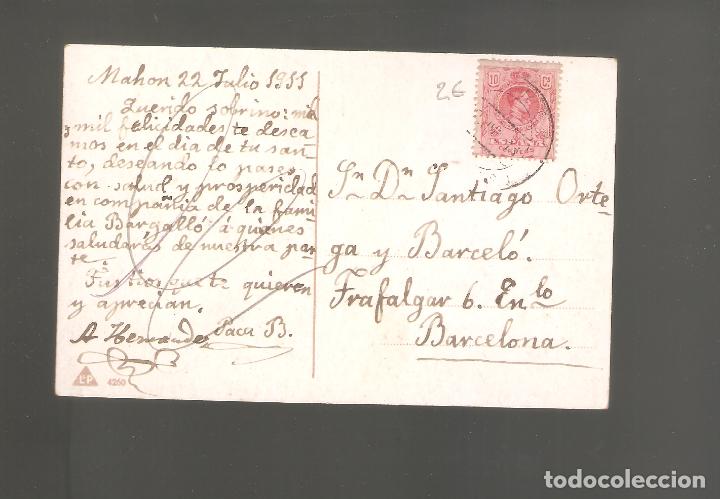 Mahon 22 Julio 1911
Querido sobrino: mil
y mil felicidades te desea
mos en el dia de tu san-
to, deseando lo pases
con salud y prosperidad
en compañia de la fami
lia Bargalló á quienes
saludarás de nuestra par-
te.
Tus tios que te quieren
y aprecian.
A Hernandez Paca B.
LP
4260
2€
10 Cs
Sn Dn Santiago Orte-
ga y Barceló.
Trafalgar 6. Enlo
Barcelona.
todocoleccion.net